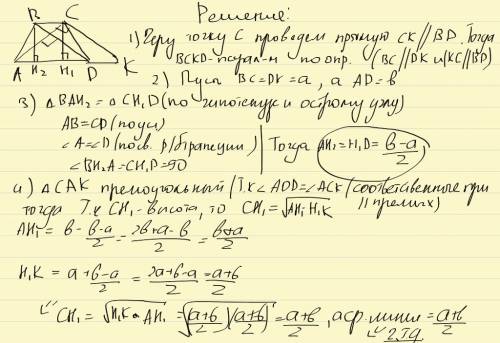 B C
A H₂ H₁ D K
Решение:
1) Через точку C проведем прямую CK//BD. Тогда
BCKD-парал-м по опр. (BC//DK и KC//BD)
2) Пусть BC=DK=a, а AD=в
3) △BAH₂=△CH₁D (по гипотенузе и острому углу)
AB=CD (по усл)
∠A=∠D (по св. р/б трапеции)
∠BH₂A=CH₁D=90
Тогда AH₂=H₁D=(в-a)/2
4) △CAK прямоугольный/Т.к ∠AOD=∠ACK (соответственные при
// прямых)
тогда Т.к CH₁-высота, то CH₁=√AH₁·H₁K
AH₁= в- (в-a)/2 = (2в+a-в)/2 = (в+a)/2
H₁K= a+(в-a)/2 = (2a+в-a)/2 = (a+в)/2
CH₁=√H₁K·AH₁=√((a+в)/2)((a+в)/2)=(a+в)/2, а ср. линия=(a+в)/2
ч.тд